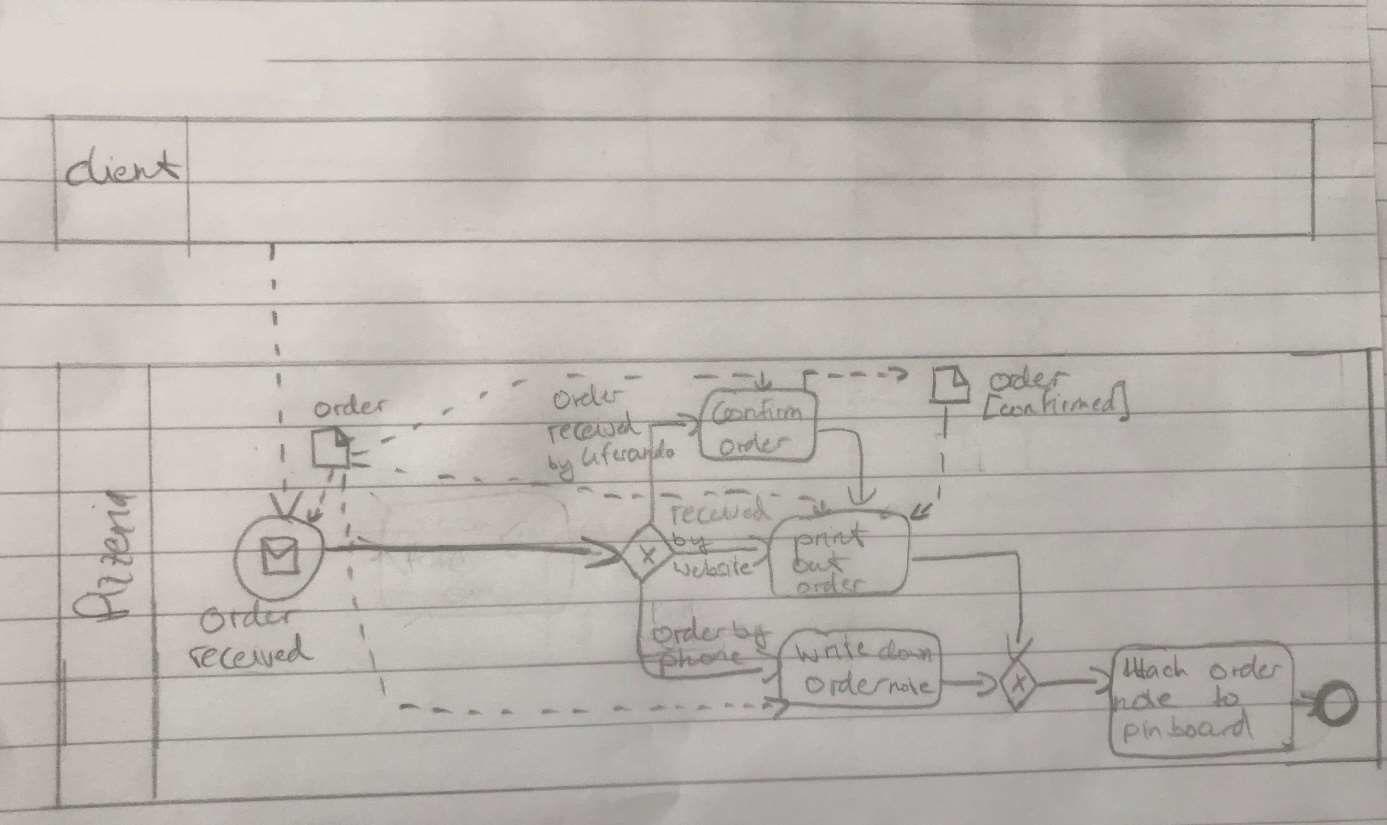 client
Pizzeria
order
order
received
Order
received
by Liferando
Confirm
order
order
[confirmed]
received
by
website
print
out
order
order by
phone
write down
order note
Attach order
note to
pinboard